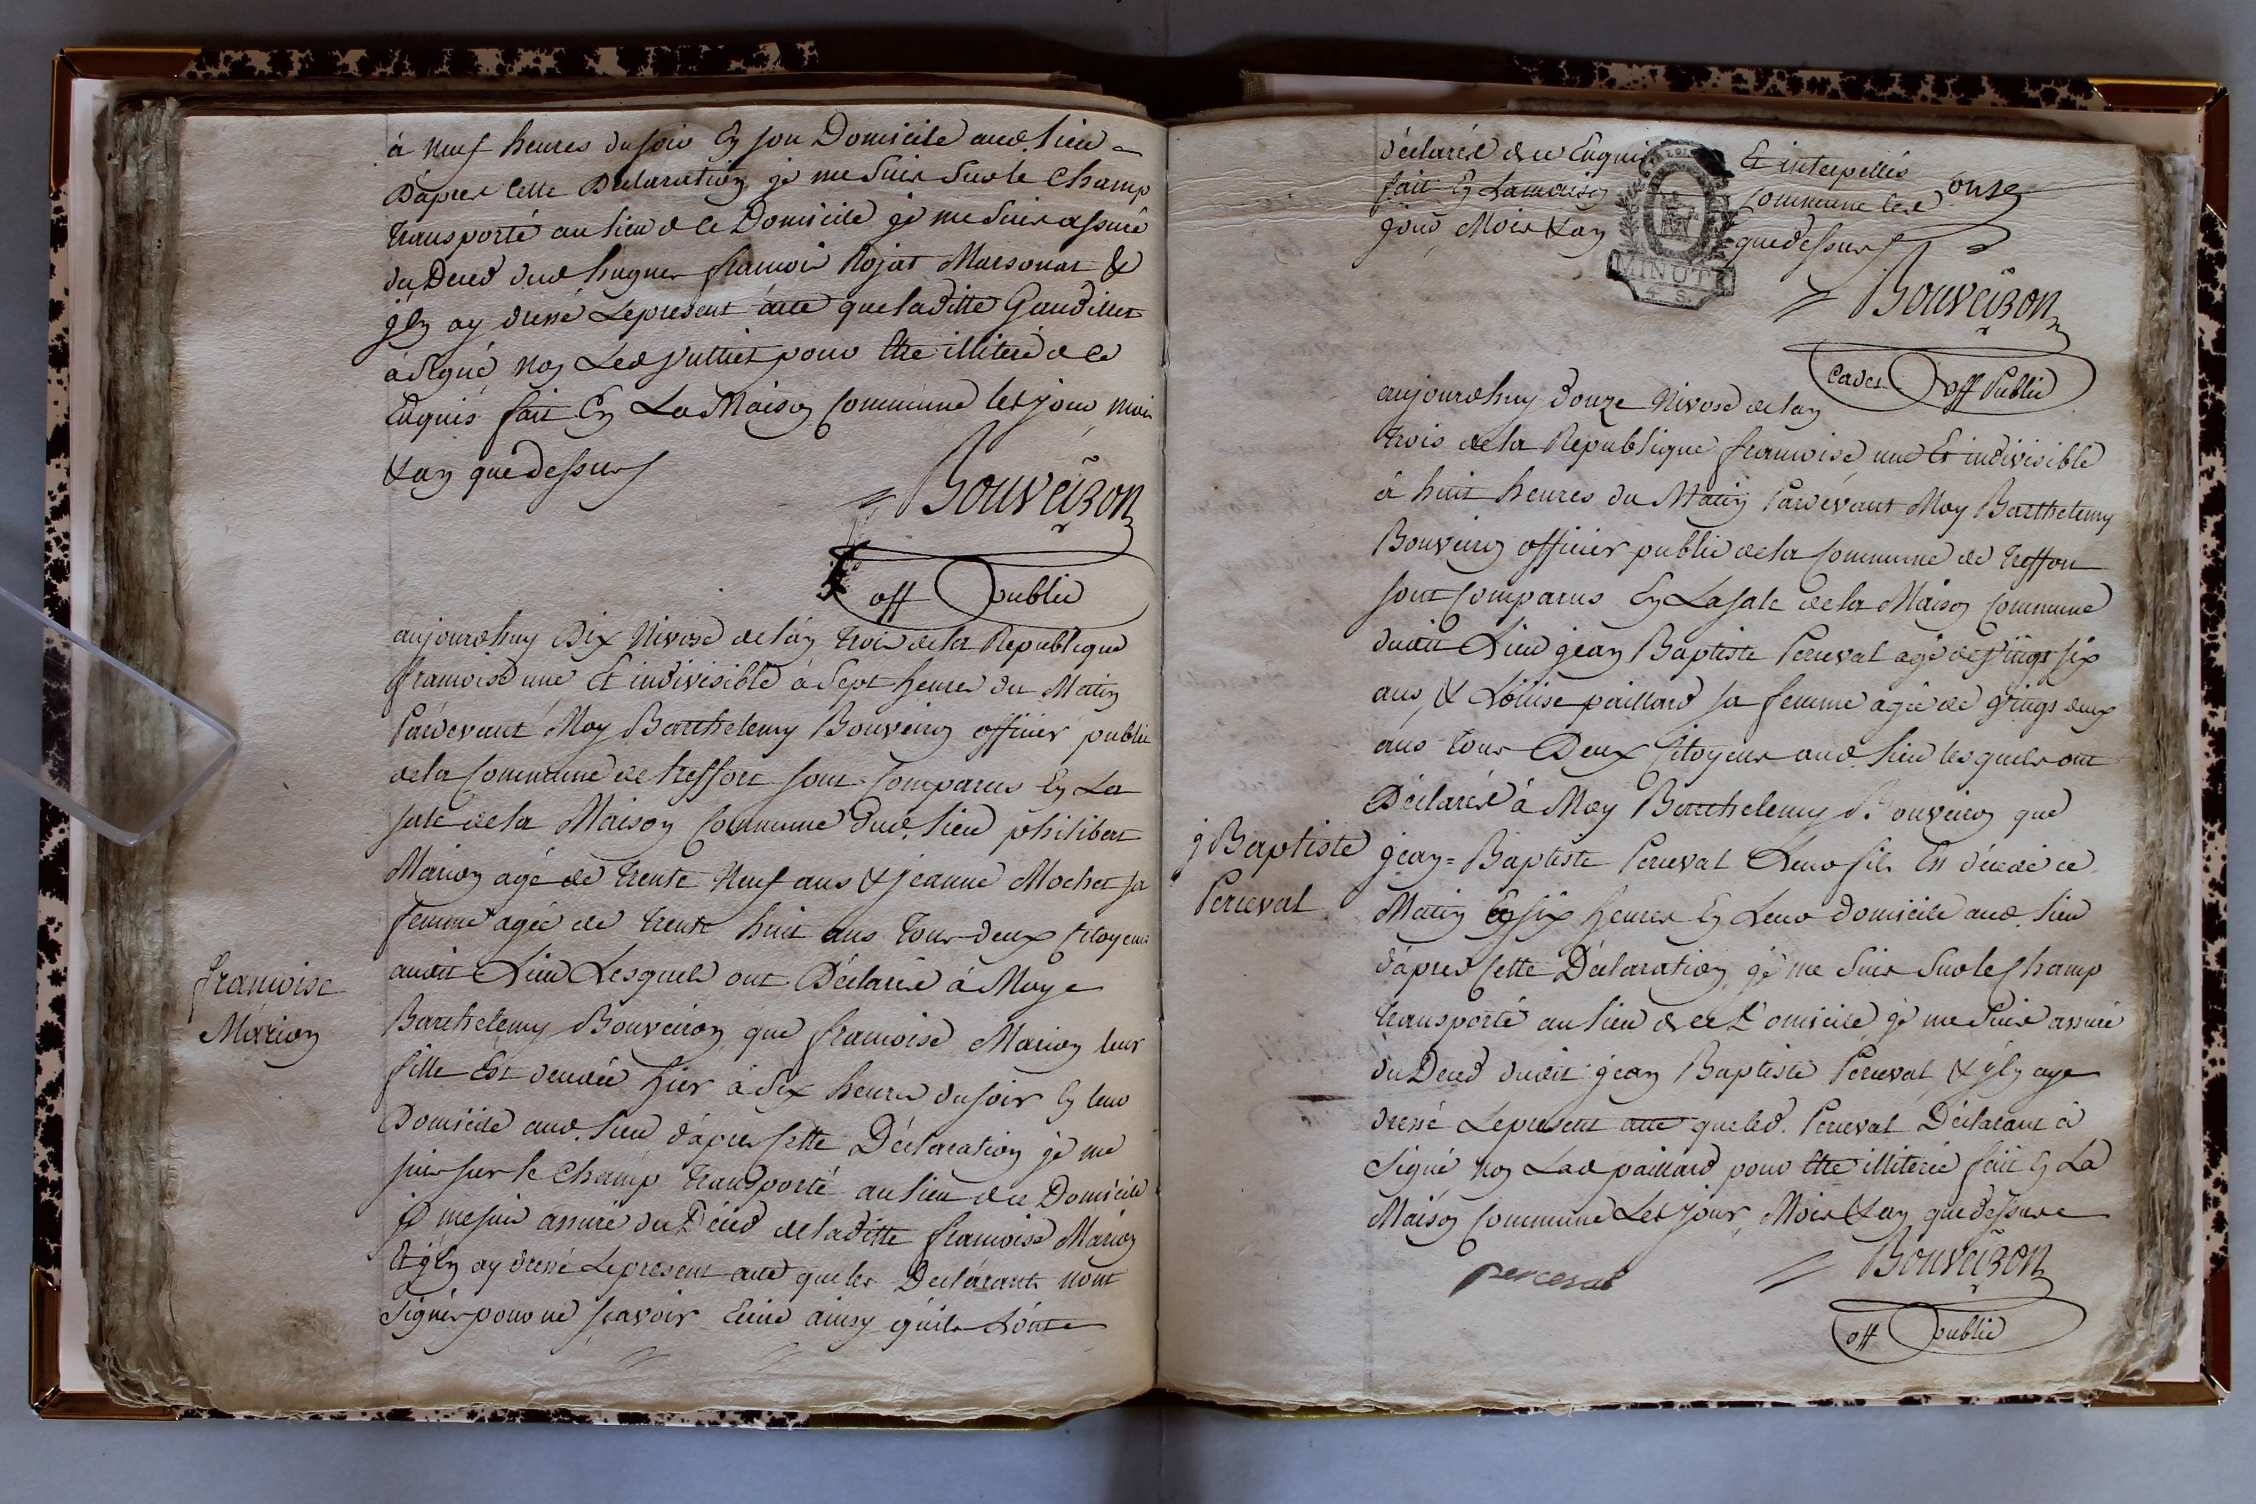 à neuf heures du soir Ey son Domicile aud. Lieu
D'apres Cette Declaration je me Suis Sur le Champ
transporté au Lieu de ce Domicile je me Suis assuré
du Deced dud hugues francois Rojat Marsonat &
j'Ey ay dressé Le present acte que laditte Gaudillet
à Signé noy Led pour Etre illiteré de ce
Enquis fait Ey La Maisoy Commune les jour, Mois
& ay que dessus
Bouveiron
off public
aujourdhuy Dix Nivose de l'ay trois de la Republique
francoise une Et indivisible à Sept heures du Matiy
Pardevant Moy Barthelemy Bouveiroy officier public
de la Commune de treffort sont Comparus Ey La
sale de la Maisoy Commune dud. Lieu philibert
Marioy agé de trente Neuf ans & jeanne Mochet sa
femme agée de trente huit ans tous deux Citoyens
audit Lieu Lesquels ont Déclaré à Moy
Barthelemy Bouveiroy que francoise Marioy leur
fille Est decedée hier à Six heures du soir Ey leur
Domicile aud. Lieu d'apres Cette Déclaration je me
suis sur le Champ transporté au Lieu de ce Domicile
je me suis assuré du Deced de laditte francoise Marioy
Et j'Ey ay dressé Le present acte que les Declarants n'ont
Signés pour ne scavoir Ecrire ainsy qu'ils L'ont
francoise
Marioy
déclaré de ce Enquis Et interpellés
fait Ey La maisoy Commune les
jour, Mois & ay que dessus
onze
MINUTE
4 S.
Bouveiron
off Public
aujourdhuy Douze Nivose de l'ay
trois de la Republique francoise une Et indivisible
à huit heures du Matiy Pardevant Moy Barthelemy
Bouveiroy officier public de la Commune de treffort
sont Comparus Ey La sale de la Maisoy Commune
dudit Lieu jeay Baptiste Perceval agé de vingt six
ans, & Löuise paillard sa femme agée de vingt deux
ans tous Deux Citoyens aud. Lieu lesquels ont
Déclaré à Moy Barthelemy Bouveiroy que
j Baptiste
Perceval
jeay=Baptiste Perceval Leur fils Est décédé ce
Matiy Ey six heures Ey Leur domicile aud. Lieu
d'apres Cette Déclaratioy je me Suis Sur le Champ
transporté au Lieu de ce Domicile je me Suis assuré
du Deced dudit jeay Baptiste Perceval, & j'Ey aye
dressé Le present acte que led. Perceval Déclarant à
Signé noy Lad paillard pour Etre illiterée fait Ey La
Maisoy Commune Les jour, Mois & ay que dessus
perceval
Bouveiron
off public